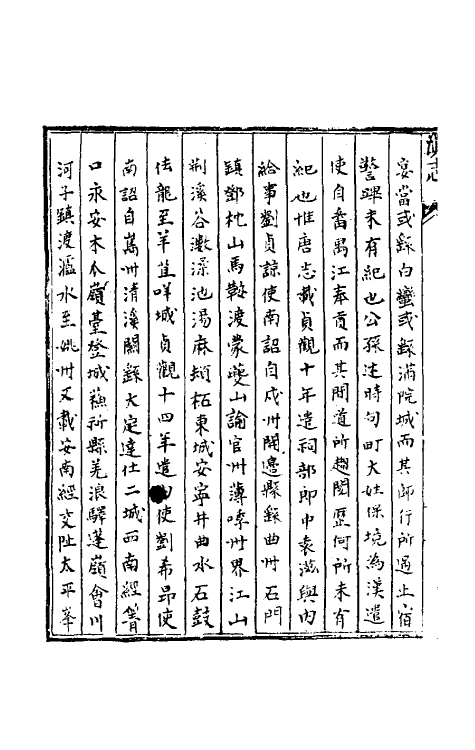 滇志
宴當或繇白虀或繇滿院城而其師行所過止宿
警蹕未有紀也公孫述時句町大姓保境為漢遣
使自番禺江奉貢而其間道所趨閱歷何所未有
紀也惟唐志載貞觀十年遣祠部郎中袁滋與內
給事劉貞諒使南詔自戎州開邊縣繇曲州石門
鎮鄧枕山馬鞍渡蒙夔山諭官州薄哮州界江山
荊溪谷瀲㵀池湯麻頓柘東城安寧井曲水石鼓
佉龍至羊苴咩城貞觀十四年遣內使劉希昂使
南詔自嶲州清溪關繇大定達仕二城西南經菁
口永安木瓜嶺臺登城蘓祈縣羌浪驛蓬嶺會川
河子鎮渡瀘水至姚州又載安南經交趾太平峯